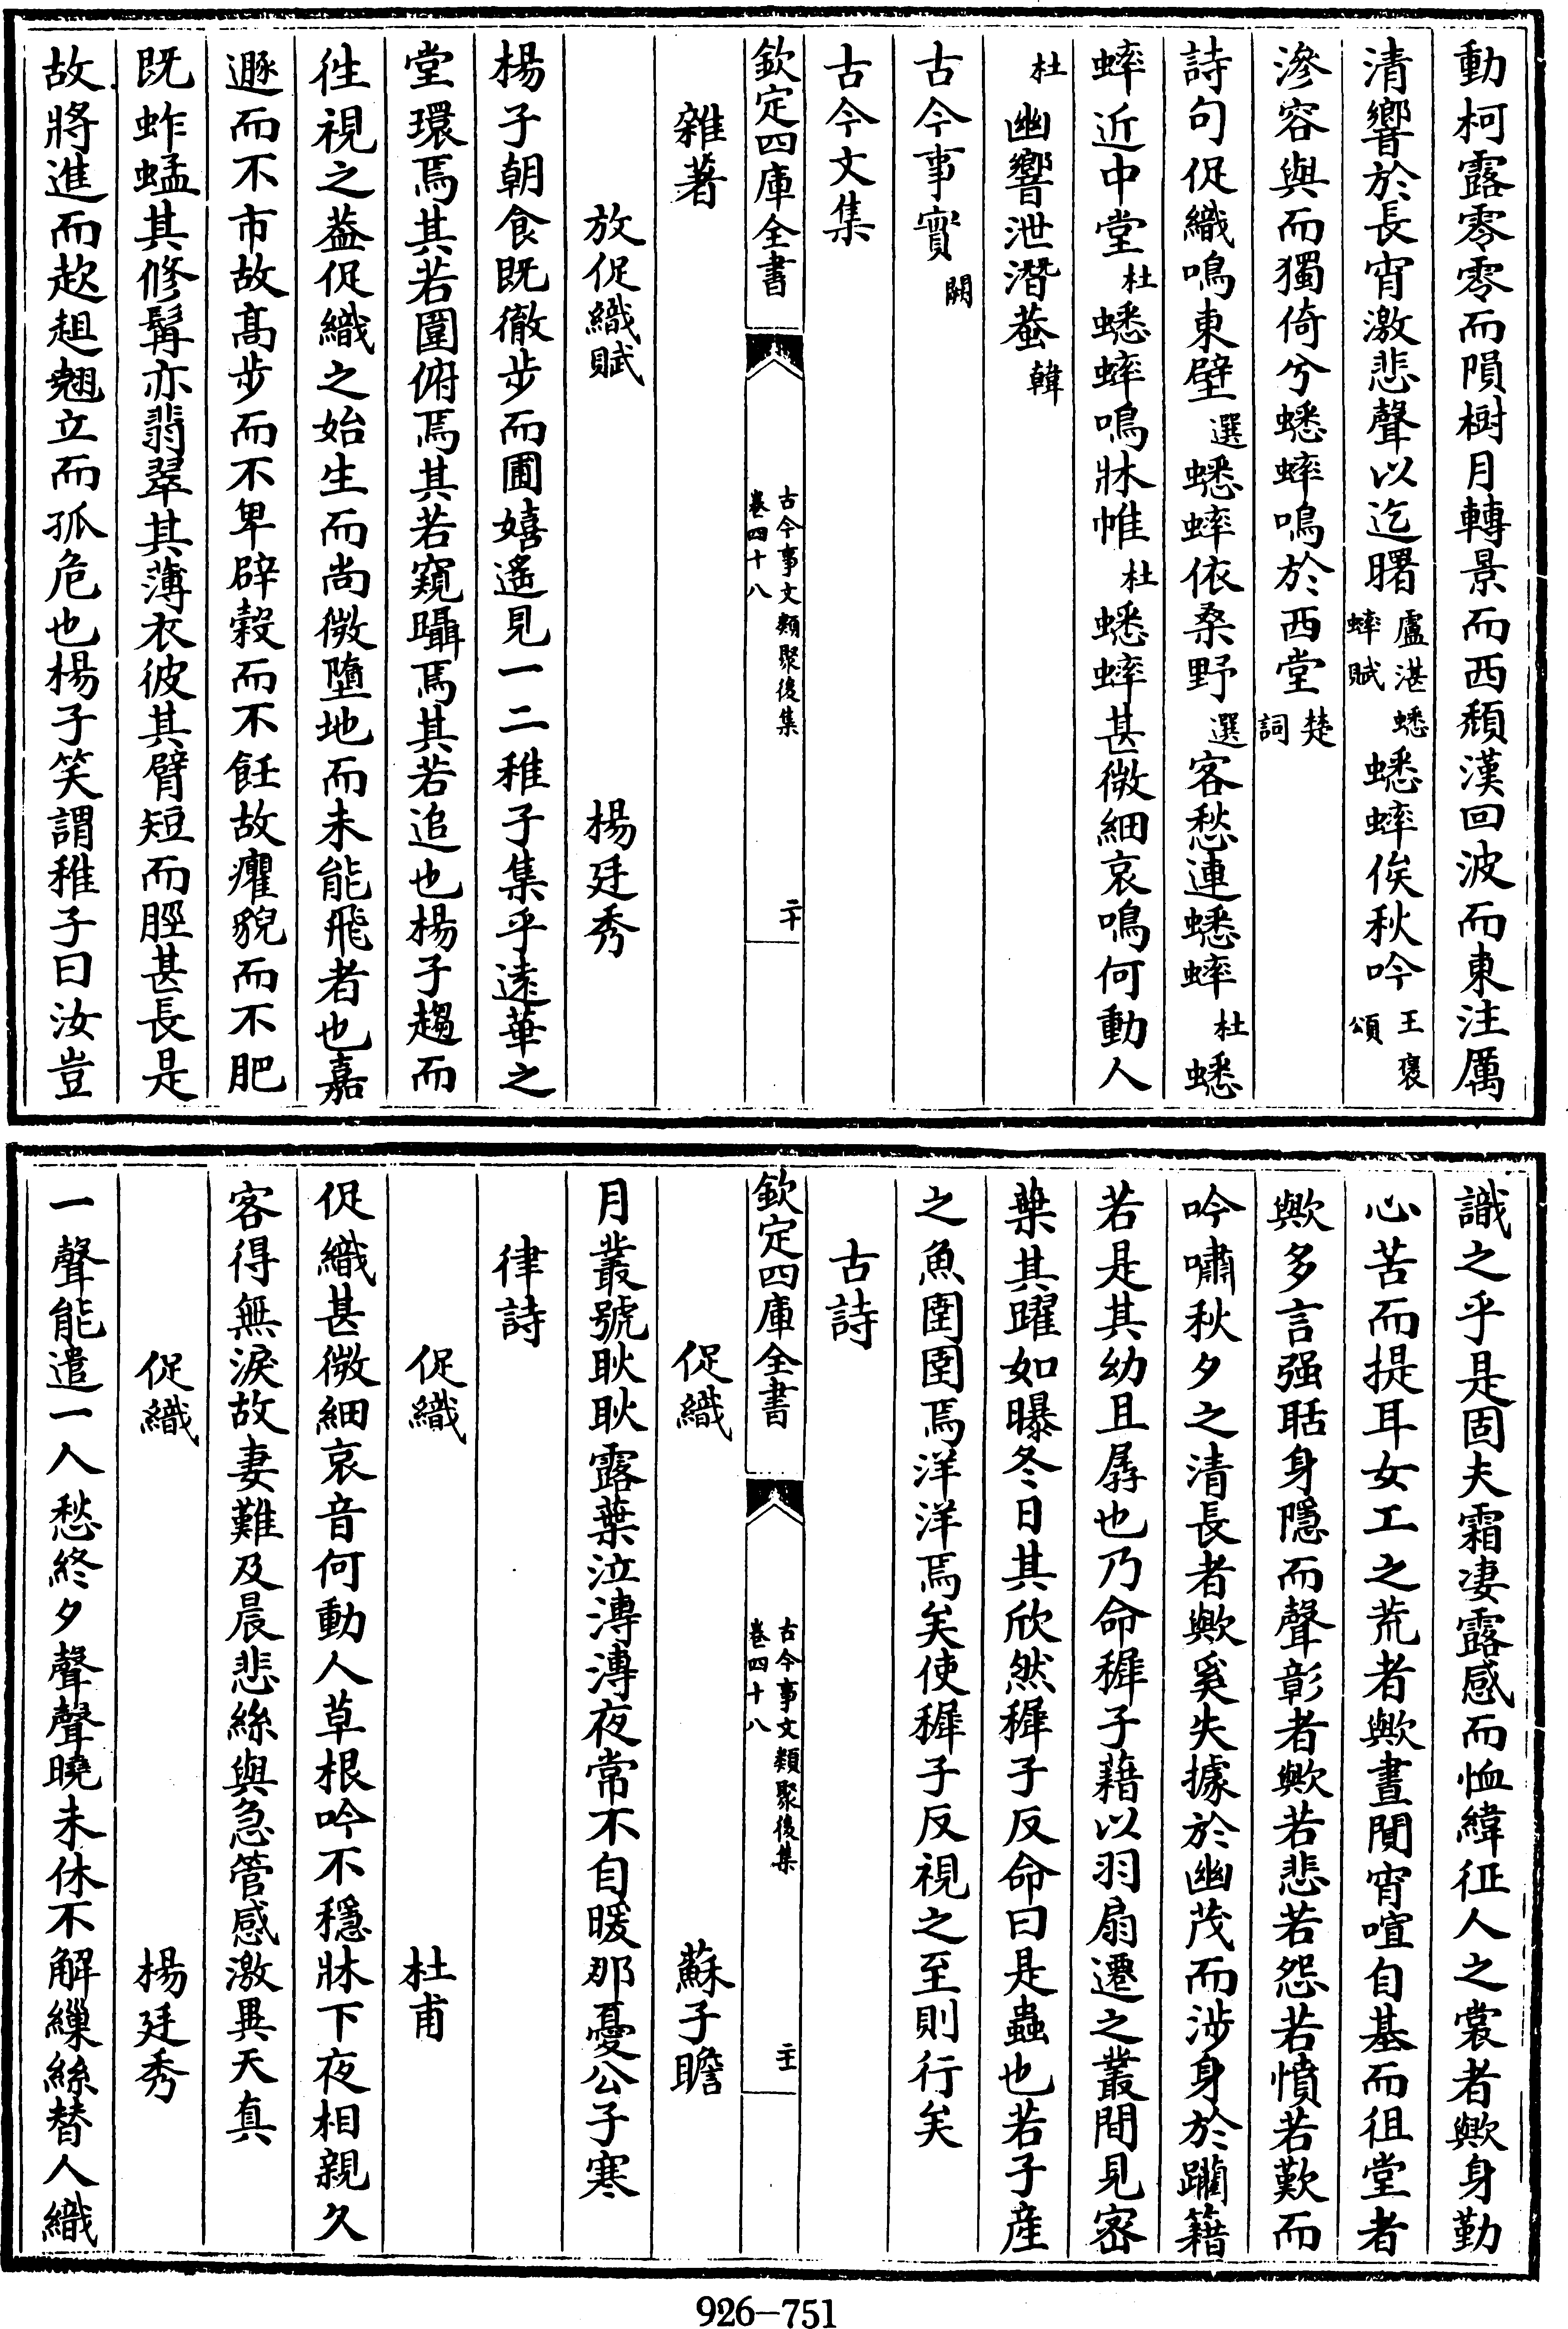 動柯露零零而隕樹月轉景而西頹漢回波而東注厲
清響於長宵激悲聲以迄曙盧湛蟋蟀賦蟋蟀俟秋吟王褒頌
滲容與而獨倚兮蟋蟀鳴於西堂楚詞
詩句促織鳴東壁選蟋蟀依桑野選客愁連蟋蟀杜蟋
蟀近中堂杜蟋蟀鳴牀帷杜蟋蟀甚微細哀鳴何動人
杜幽響泄潛蛩韓
古今事實闕
古今文集
欽定四庫全書
古今事文類聚後集
卷四十八
二十
雜著
放促織賦 楊廷秀
楊子朝食既徹步而圃嬉遙見一二稚子集乎遠華之
堂環焉其若圍俯焉其若窺躡焉其若追也楊子趨而
徃視之葢促織之始生而尚微墮地而未能飛者也嘉
遯而不市故髙步而不卑辟穀而不飪故癯貌而不肥
既蚱蜢其修髯亦翡翠其薄衣彼其臂短而脛甚長是
故將進而趑趄翹立而孤危也楊子笑謂稚子曰汝豈
識之乎是固夫霜凄露感而恤緯征人之裳者歟身勤
心苦而提耳女工之荒者歟晝閴宵喧自基而徂堂者
歟多言强聒身隱而聲彰者歟若悲若怨若憤若歎而
吟嘯秋夕之清長者歟奚失據於幽茂而涉身於躪籍
若是其幼且孱也乃命穉子藉以羽扇遷之叢間見宻
葉其躍如曝冬日其欣然穉子反命曰是蟲也若子産
之魚圉圉焉洋洋焉矣使穉子反視之至則行矣
古詩
欽定四庫全書
古今事文類聚後集
卷四十八
二十一
促織 蘇子瞻
月叢號耿耿露葉泣漙漙夜常不自暖那憂公子寒
律詩
促織 杜甫
促織甚微細哀音何動人草根吟不穩牀下夜相親久
客得無淚故妻難及晨悲絲與急管感激異天真
促織 楊廷秀
一聲能遣一人愁終夕聲聲曉未休不解繅絲替人織
926-751